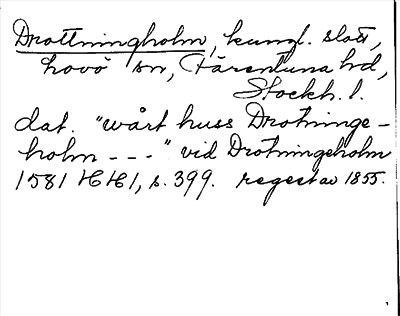 Drottningholm, kungl. slott,
Lovö sn, Färentuna hd,
Stockh. l.
dat. "wårt huss Drotninge-
holm - - -" vid Drotningeholm
1581 HH1, s. 399. regest av 1855.